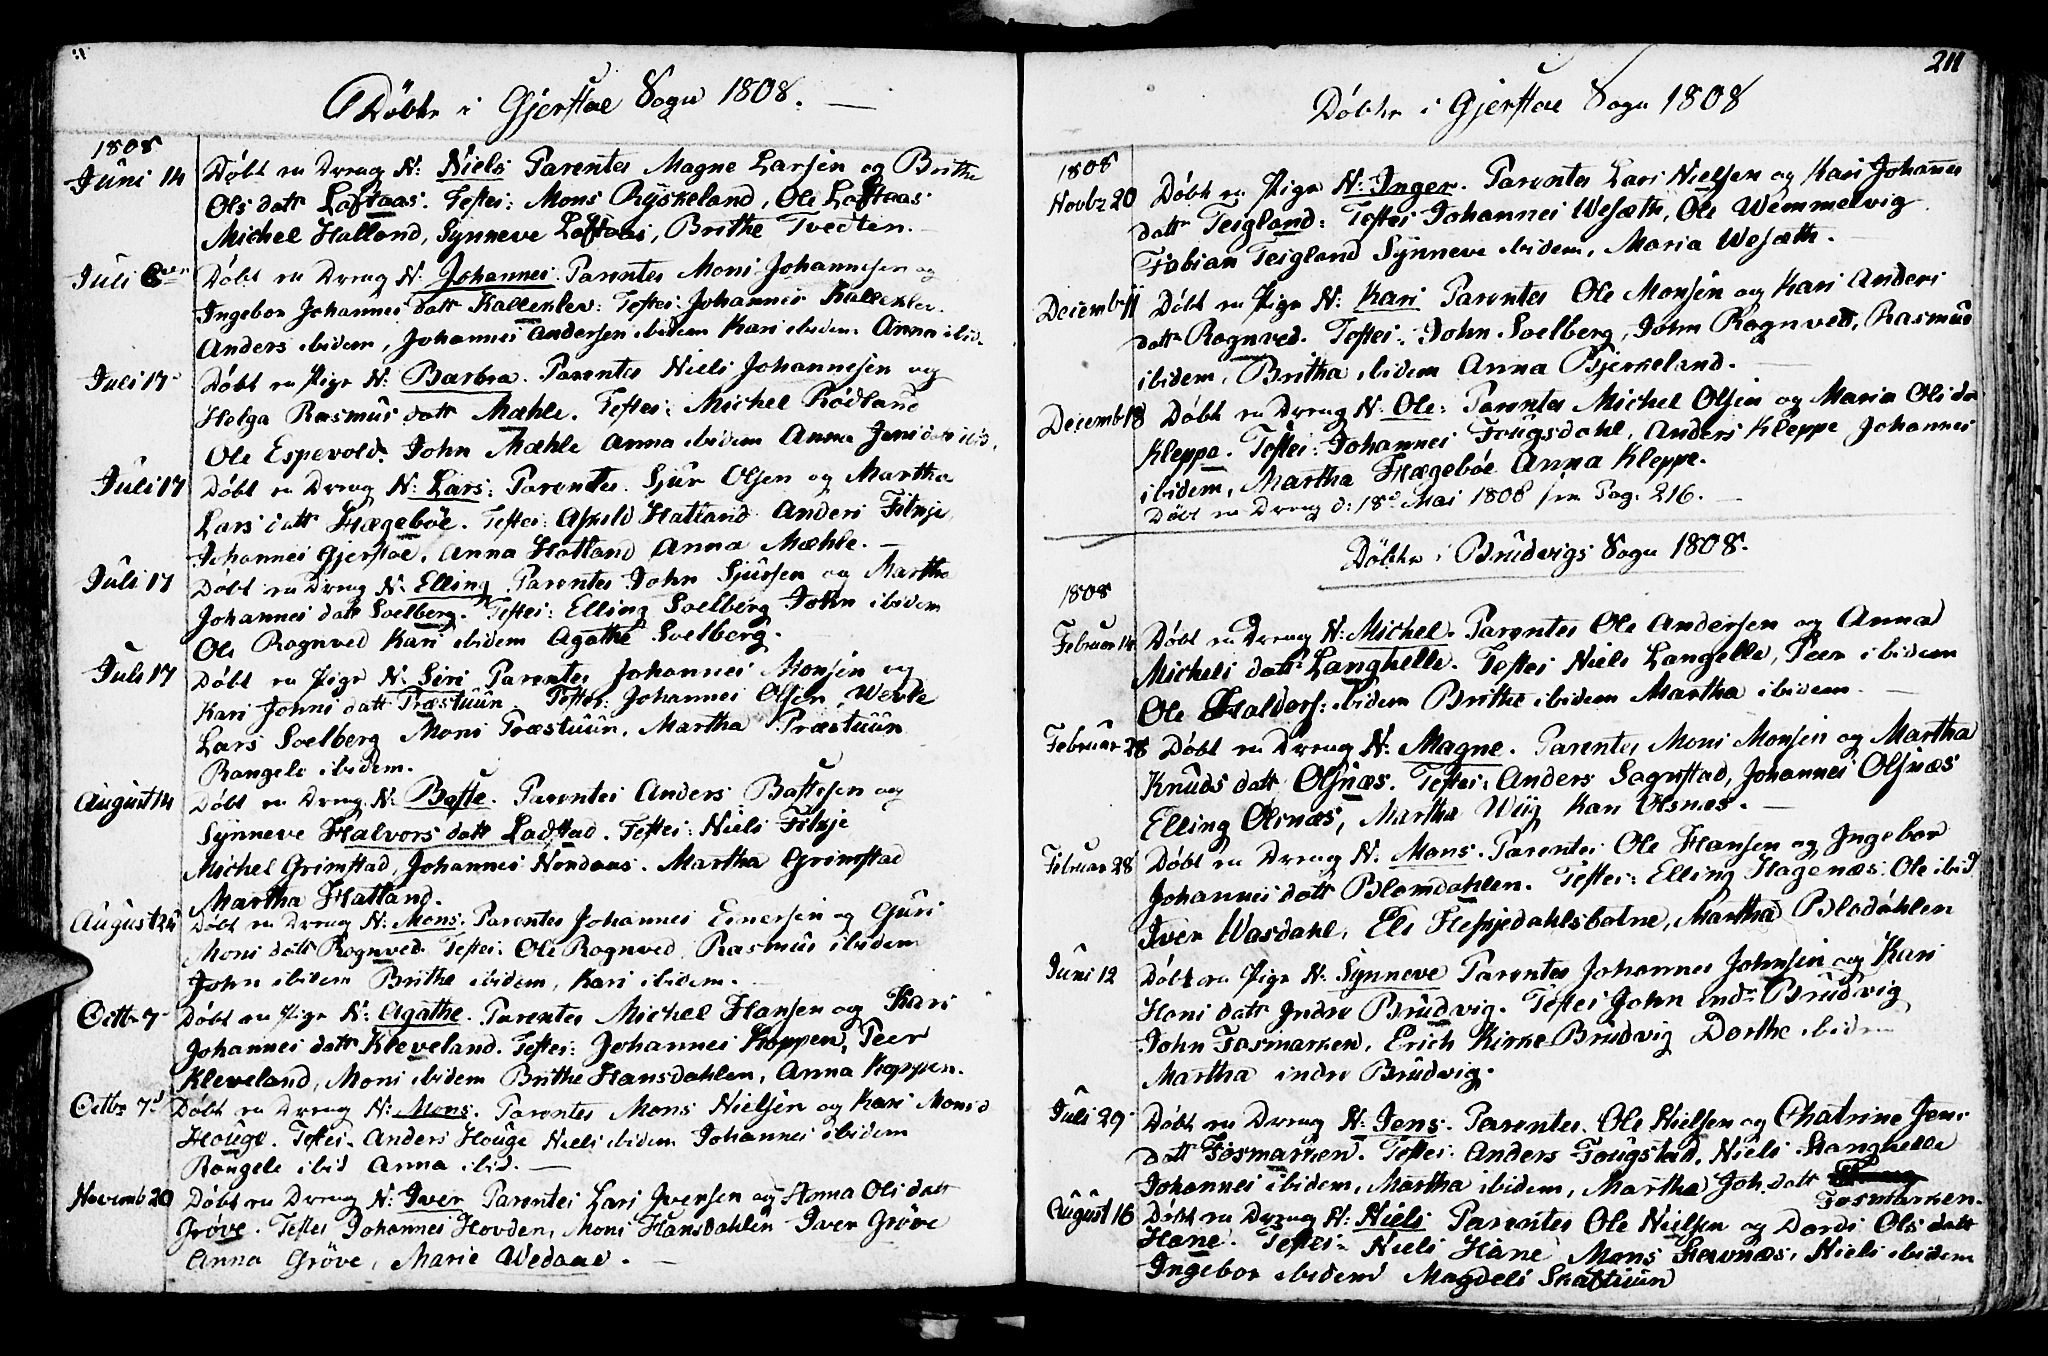 Döbte i Gjerstae Sogn 1808.
1808
Juni 14 Döbt en Dreng N: Niels Parentes Magne Larsen og Brithe
Ols datt Loftaas. Testes: Mons Ryskeland, Ole Loftaas
Michel Halland, Synneve Loftaas, Brithe Tvedten.
Juli Döbt en Dreng N: Johannes. Parentes Mons Johannesen og
Ingebor Johannes datt Kalleklev: Testes: Johannes Kalleklev
Anders ibidem, Johannes Andersen ibidem Kari ibidem Anna ibid.
Juli 17 Döbt en Pige N: Barbra. Parentes Niels Johannesen og
Helga Rasmus datt Mæhle. Testes: Michel Rödland
Ole Espevold. John Mæhle Anna ibidem Anna Jens datt ibid.
Juli 17 Döbt en Dreng N: Lars: Parentes. Sjur Olsen og Martha
Lars datt Hægeböe. Testes: Askild Hatland Anders Fitxje
Johannes Gjerstae. Anna Hatland Anna Mæhle.
Juli 17 Döbt en Dreng N: Elling Parentes John Sjursen og Martha
Johannes datt Soelberg. Testes: Elling Soelberg John ibidem
Ole Rognved Kari ibidem Agathe Soelberg.
Juli 17 Döbt en Pige N: Siri Parentes Johannes Monsen og
Kari Johns datt Præstuun Testes: Johannes Olsen Wevle
Lars Soelberg Mons Præstuun, Martha Præstuun
Rangele ibidem.
August 14 Döbt en Dreng N: Baste. Parentes Anders Bastesen og
Synneve Halvors datt Ladstad. Testes: Niels Fitxje
Michel Grimstad, Johannes Nordaas. Martha Grimstad
Martha Hatland.
August 24 Döbt en Dreng N: Mons: Parentes Johannes Einersen og Guri
Mons datt Rognved Testes: Ole Rognved Rasmus ibidem
John ibidem Brithe ibidem, Kari ibidem.
Octb 7 Döbt en Pige N: Agathe. Parentes Michel Hansen og Kari
Johannes datt Kleveland. Testes: Johannes Koppen, Peer
Kleveland, Mons ibidem Brithe Hansdahlen, Anna Koppen.
Octbr 7 Döbt en Dreng N: Mons. Parentes Mons Nielsen og Kari Mons d
Houge. Testes. Anders Houge Niels ibidem Johannes ibidem
Rangele ibid Anna ibid.
Novemb 20 Döbt en Dreng N: Iver Parentes Lars Iversen og Anna Ols datt
Gröve. Testes Johannes Hovden, Mons Hansdahlen Iver Gröve
Anna Gröve, Marie Wedaae.
211
Döbte i Gjerstae Sogn 1808
1808
Novbr 20 Döbt en Pige N: Inger. Parentes Lars Nielsen og Kari Johannes
datt Teigland: Testes Johannes Wesæth, Ole Wemmelvig
Fabian Teigland Synneve ibidem, Maria Wesæth.
Decemb 11 Döbt en Pige N: Kari Parentes Ole Monsen og Kari Anders
datt Rognved. Testes: John Soelberg, John Rognved, Rasmus
ibidem, Britha ibidem Anna Bjerkeland.
Decemb 18 Döbt en Dreng N: Ole: Parentes Michel Olsen og Maria Ols da
Kleppe. Testes: Johannes Fougsdahl, Anders Kleppe Johannes
ibidem, Martha Hægeböe Anna Kleppe.
Döbt en Dreng d: 18d Mai 1808 see Pag. 216.
Döbte i Brudvigs Sogn 1808.
1808
Februar 14 Döbt en Dreng N: Michel. Parentes Ole Andersen og Anna
Michels datt Langhelle. Testes Niels Langelle, Peer ibidem
Ole Haldors: ibidem Brithe ibidem Martha ibidem.
Februar 28 Döbt en Dreng N: Magne. Parentes Mons Monsen og Martha
Knuds datt Olsnæs. Testes: Anders Sagstad, Johannes Olsnæs
Elling Olsnæs, Martha Wiig Kari Olsnæs.
Februar 28 Döbt en Dreng N. Mons. Parentes Ole Hansen og Ingebor
Johannes datt Blomdahlen. Testes: Elling Hagenæs. Ole ibid
Iver Wasdahl, Els Hesjedahlsbotne, Martha Blodahlen
Juni 12 Döbt en Pige N: Synneve Parentes Johannes Johnsen og Kari
Hans datt Indre Brudvig. Testes John indr Brudvig
John Fosmarken, Erich Kirke Brudvig Dorthe ibidem
Martha indre Brudvig.
Juli 29 Döbt en Dreng N: Jens. Parentes. Ole Nielsen og Chatrine Jens
datt Fosmarken. Testes: Anders Fougstad, Niels Langhelle
Johannes ibidem, Martha ibidem, Martha Joh. datt
Fosmarken.
August 16 Döbt en Dreng N: Niels Parentes Ole Nielsen og Dordi Ols datt
Hane. Testes: Niels Hane Mons Havnæs, Niels ibidem
Ingebor ibidem Magdeli Skaftuun